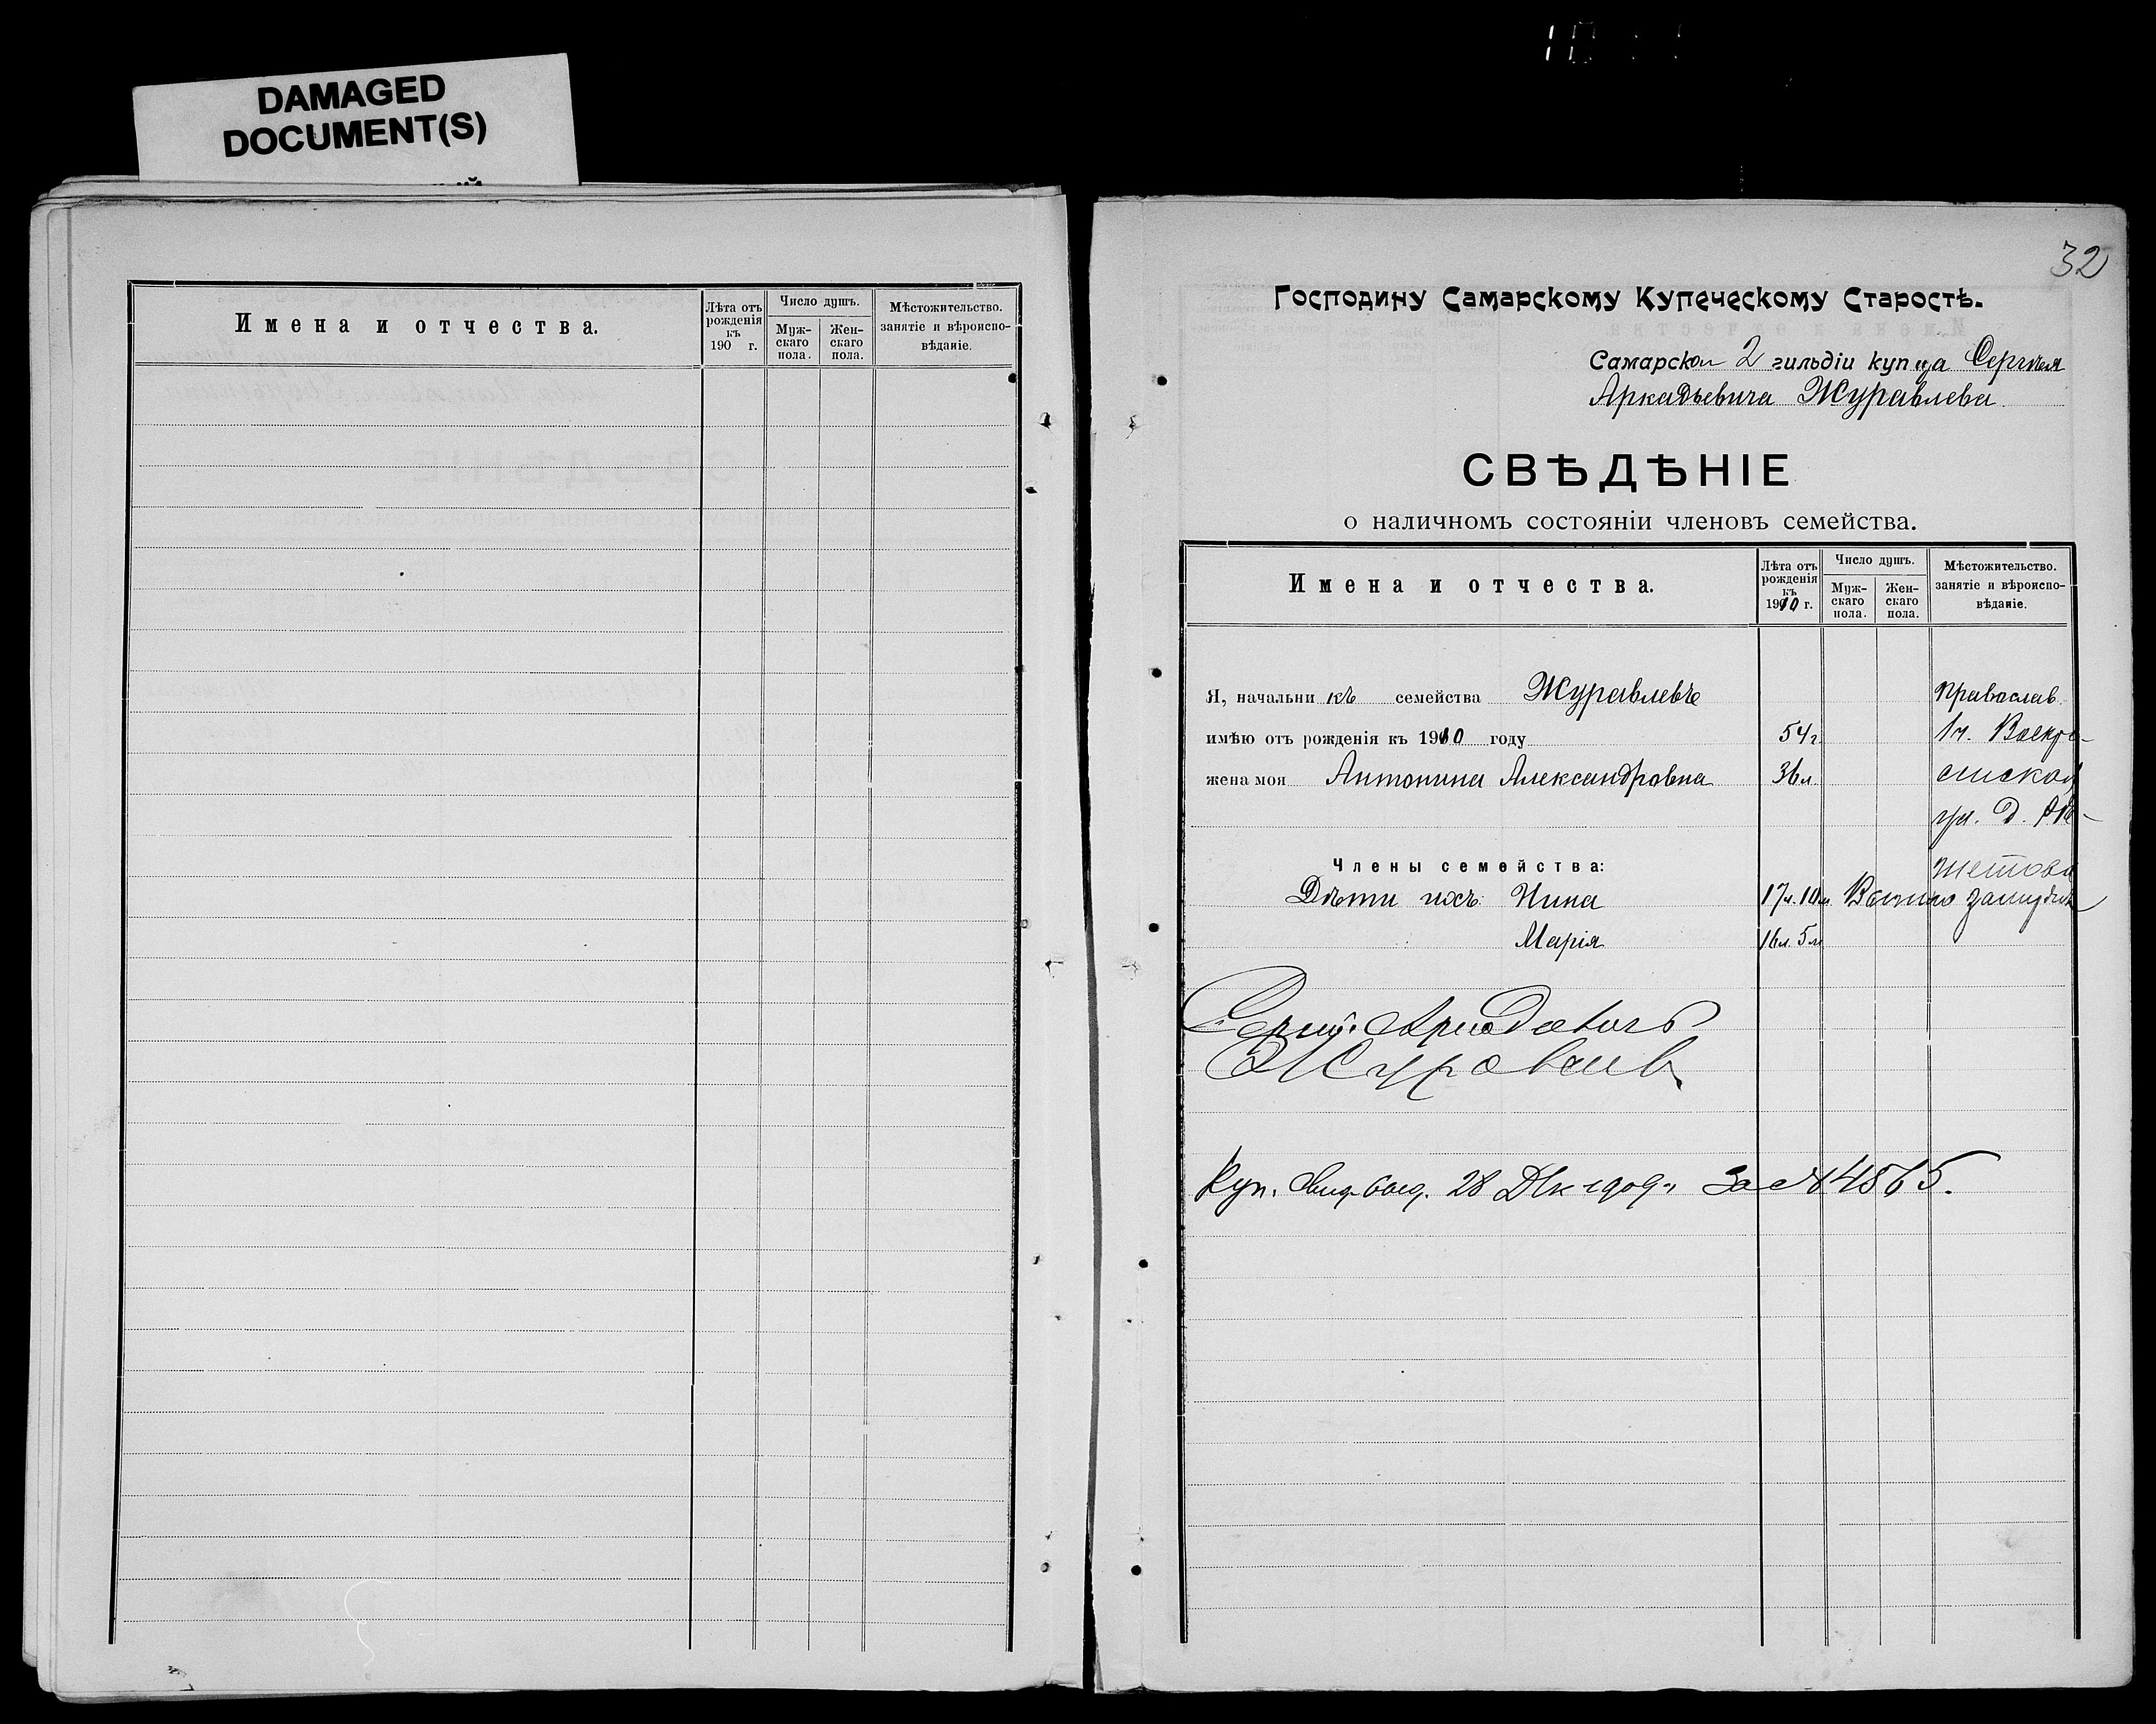 DAMAGED
DOCUMENT(S)
Имена и отчества.
Лѣта отъ рожденія къ 190 г.
Число душъ.
Муж-скаго пола.
Жен-скаго пола.
Мѣстожительство. занятіе и вѣроиспо-вѣданіе.
32
Господину Самарскому Купеческому Старостѣ.
Самарскаго 2 гильдіи купца Сергѣя
Аркадьевича Журавлева
СВѢДѢНІЕ
о наличномъ состояніи членовъ семейства.
Имена и отчества.
Лѣта отъ рожденія къ 1910 г.
Число душъ.
Муж-скаго пола.
Жен-скаго пола.
Мѣстожительство. занятіе и вѣроиспо-вѣданіе.
Я, начальникъ семейства Журавлевъ Православ.
имѣю отъ рожденія къ 1910 году 54 г. 1 ч. Воскре-
жена моя Антонина Александровна 36 л. сенской
ул. д.
Члены семейства:
Дѣти ихъ: Нина 17 л. 10 м.
Марія 16 л. 5 м.
Сергѣй Аркадьевичъ
Журавлевъ
Куп. свид. выд. 28 Дек 1909 г. за № 4565.